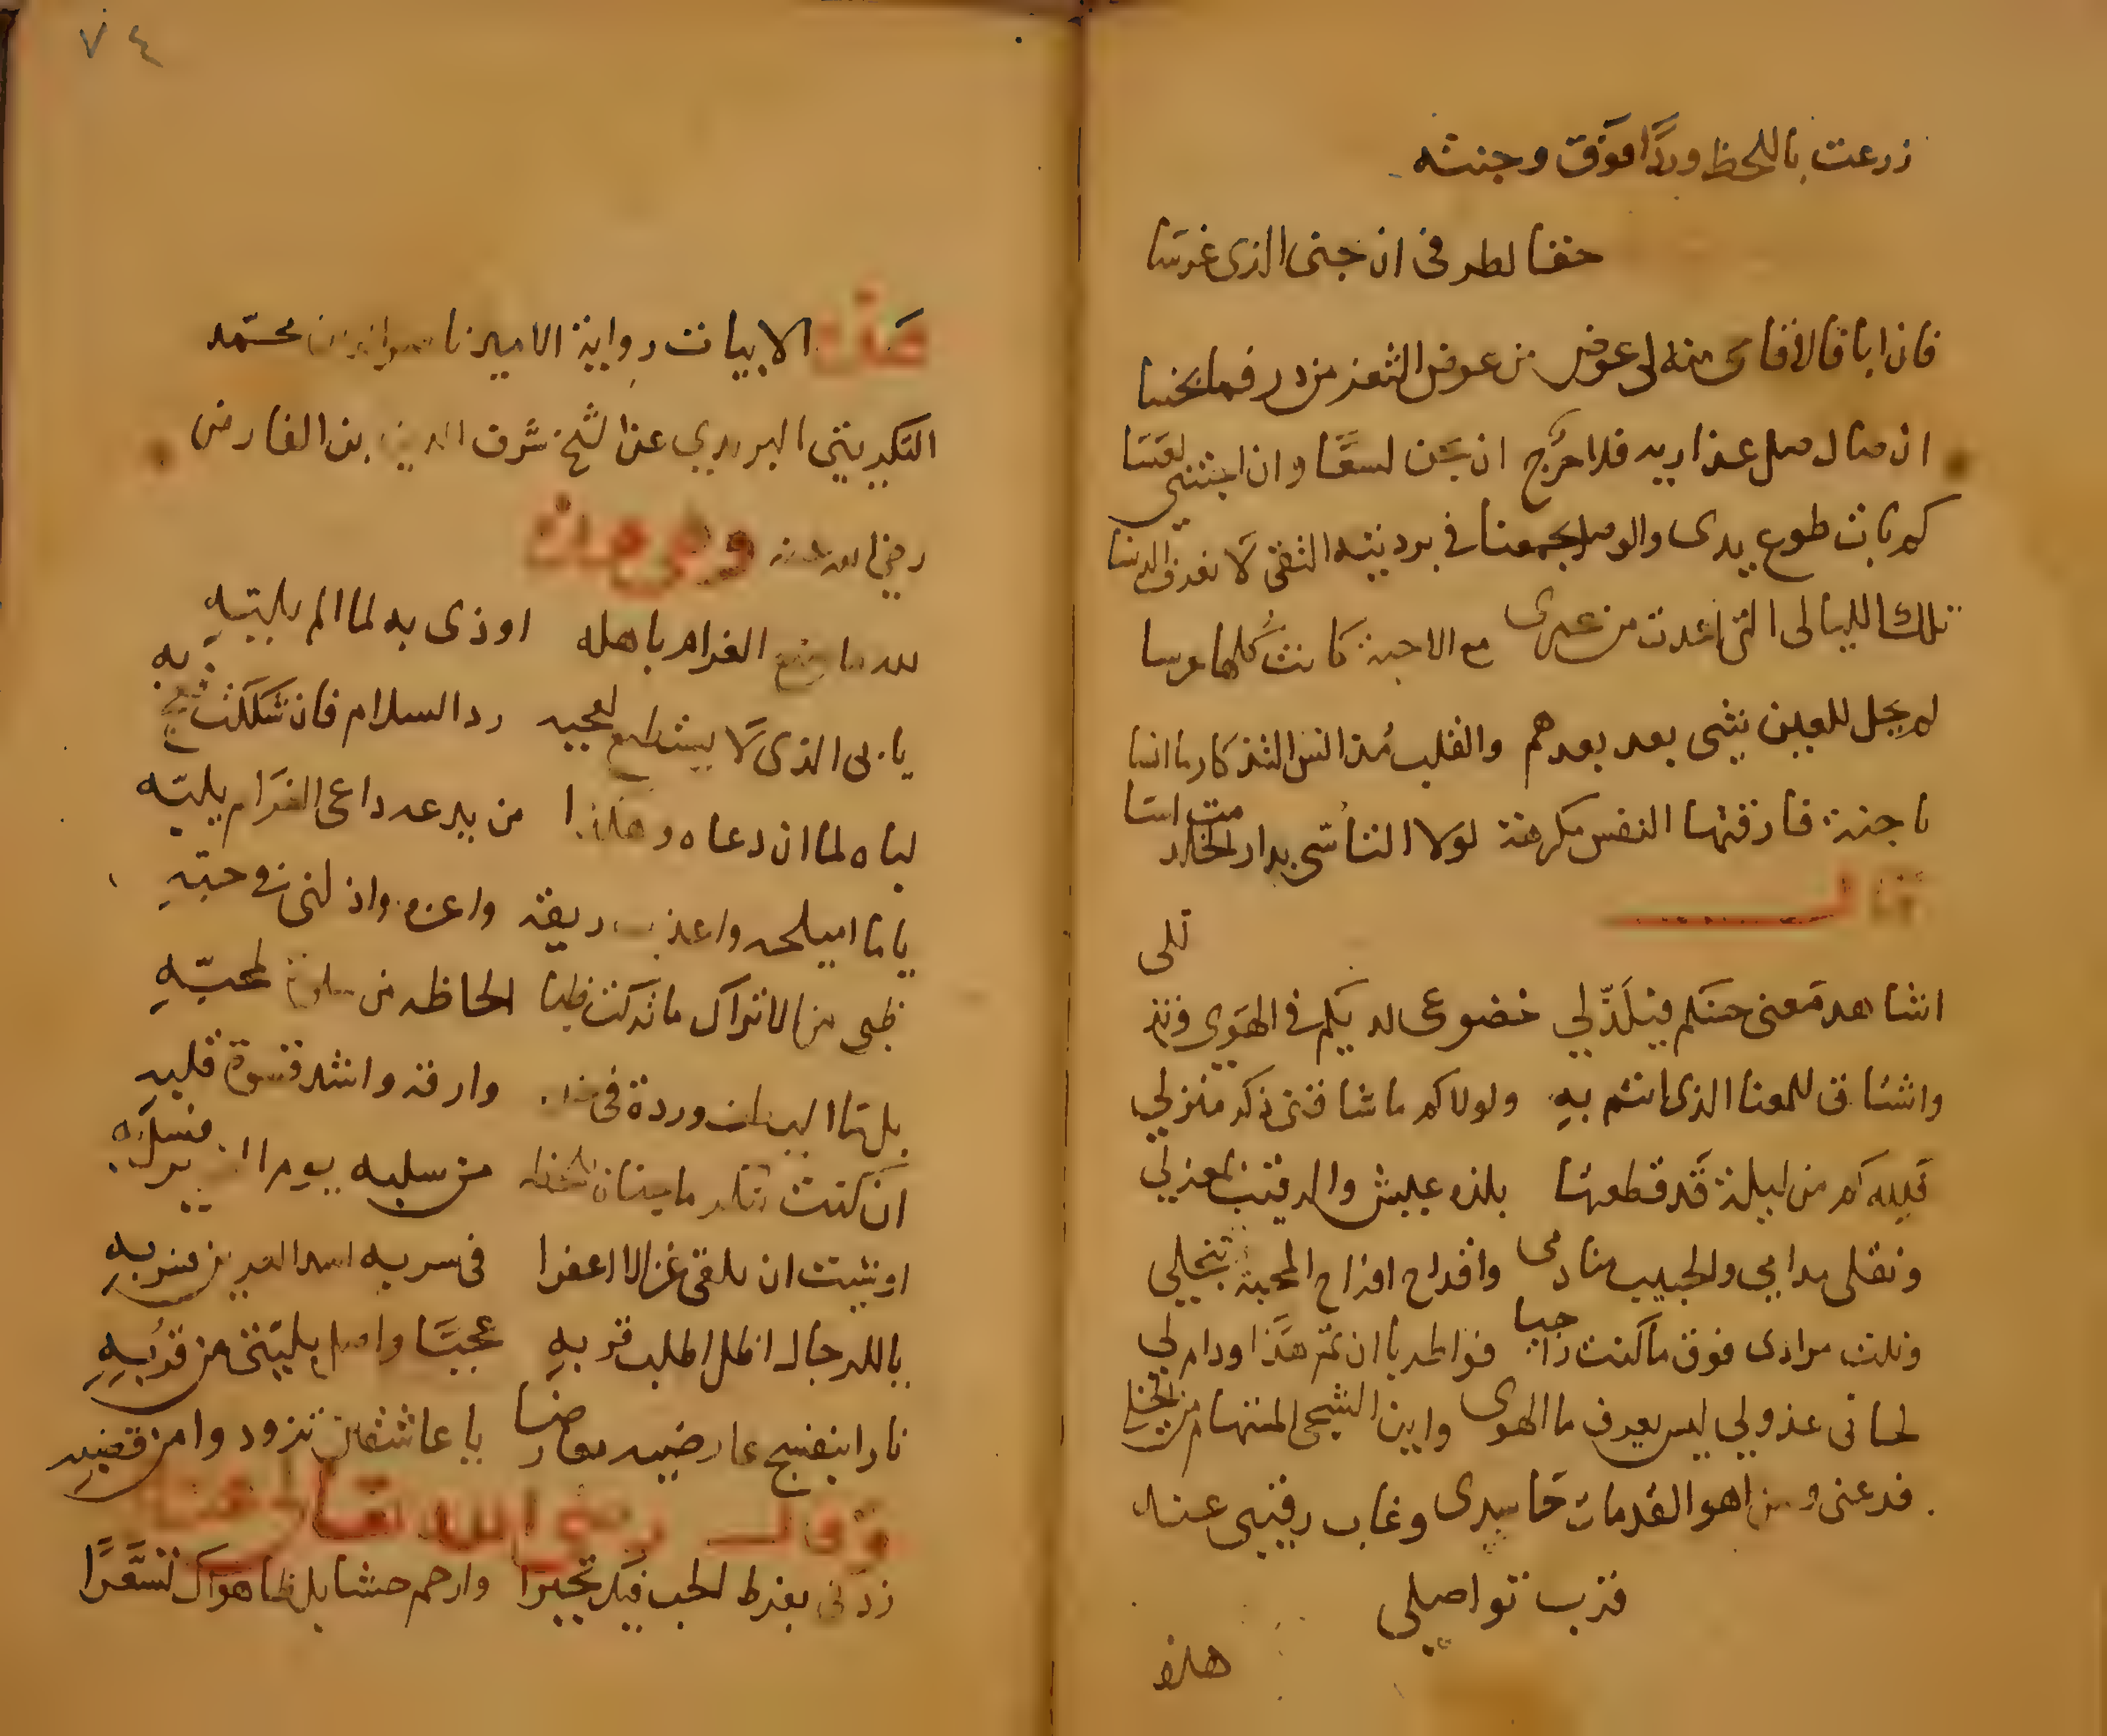 زرعت باللحظ وردًا فوق وجنته
حقا لطرفى ان جنى الذى غرسا
فان ابا فالاقاحى منه لى عوض من عوض الثغر من در فما بخسا
ان صال صل عذاريه فلا حرج ان يجن لسعًا وان اجتنى لعسا
كم بات طوع يدى والوصل يجمعنا فى برديته التقى لا نعرف الدنسا
تلك الليالى التى اعددت من عمرى مع الاحبة كانت كلها عرسا
لم يحل للعين شى بعد بعدهم والقلب مُذ انس التذكار ما انسا
يا جنة فارقتها النفس مكرهنة لولا التأسّى بدار الخلد مت اسَا
قال
اشاهد مَعنى حسنكم فيلَذّ لي خضوعى لديكم فى الهَوى وتذللى
واشتاق للمغنا الذى انتم بهِ ولولاكم ما شاقنى ذكر منزلي
فَلِله كم من ليلة قَد قطعتها بلذه عيش والرقيب بمعزلي
ونقلى مدامي والحبيب منادمى واقداح افراح المحبة تنجلي
ونلت مرادى فوق ما كنت راجيا فواطربا ان تم هَذا ودام لي
لحانى عذولي ليس يعرف ما الهوى واين الشجى المستهام من الخلى
فدعنى ومن اهوا لقد مات حَاسدى وغاب رقيبى عند
قرب تواصلى
هذه
٧٤
هَذه الابيات رواية الامير ناصر الدين محمّد
التكريتى البريدي عن الشيخ شرف الدين بن الفارض
رضي الله عنه وهى هذه
لله ما صنع الغرام باهله اوذى به لما الم بلبّهِ
يا بى الذى لا يستطيع لعجبه رد السلام فان شككت فعج به
لباه لما ان دعاه وهكذا من يدعه داعى الغرَام يلبّه
يا ما اميلحه واعذب ريقه واعزه واذلنى فى حبّهِ
ظبى من الاتراك ما تركت ظبا الحاظه من سلوة لمحبّهِ
بل ما البستان وردة فى خده وارقه واشد قسوة قلبهِ
ان كنت تنكر ما جنان لحظه من سلبه يوما فسل به
او شيت ان تلقى غزالا اعفرا فى سربه اسد العرين فسر بهِ
يا للرجال اظل اطلب قربهِ عجبًا واصل بليّتى من قربهِ
نادا بنفسج عارضيه معارضا يا عاشقان تزودوا من قضبهِ
وقال رضى الله تعالى عنه
زدنى بفرط الحب فيك تحيرا وارحم حشا بلظا هواك تسعَّرًا